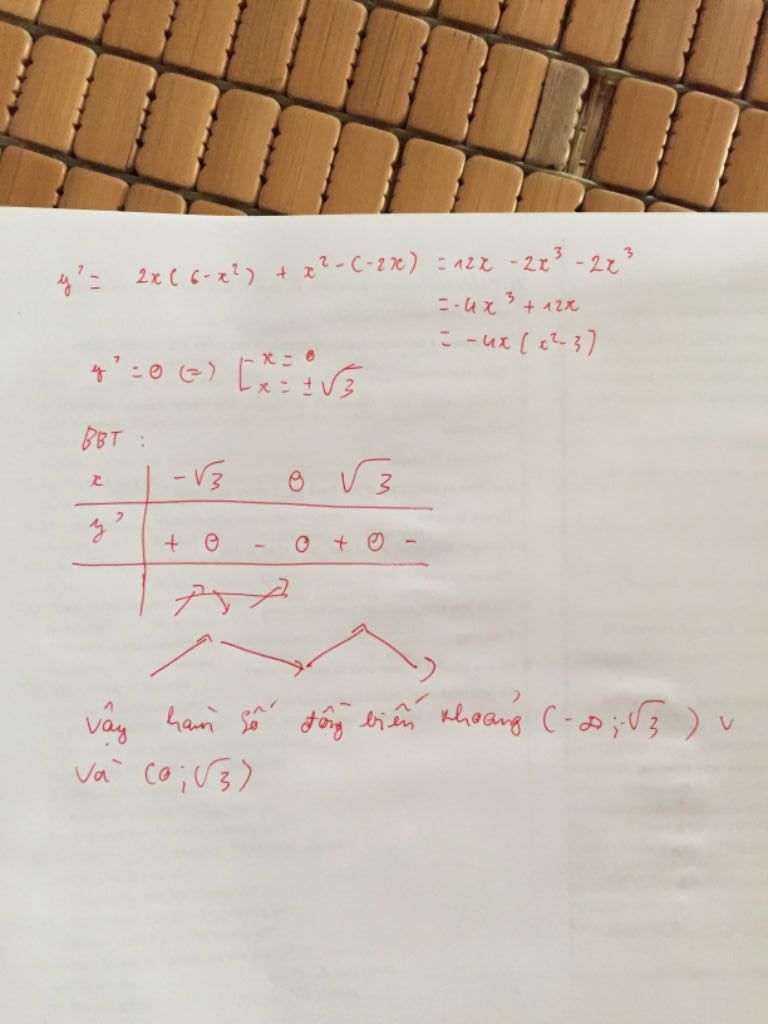 y' = 2x(6-x²) + x²-(-2x) = 12x - 2x³ - 2x³
= -4x³ + 12x
= -4x(x²-3)
y' = 0 (=) [ x = 0
x = ±√3
BBT :
x -√3 0 √3
y' + 0 - 0 + 0 -
Vậy hàm số đồng biến khoảng (-∞;-√3) v
Và (0;√3)